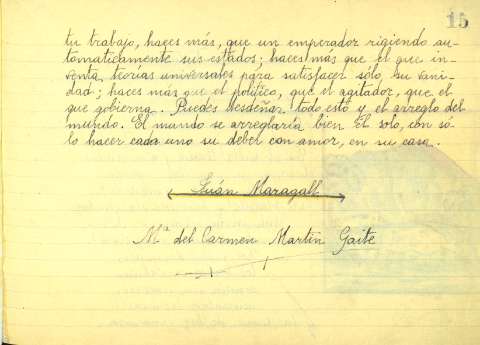 15
tu trabajo, haces más, que un emperador rigiendo au-
tomaticamente sus estados; haces más que el que in-
venta teorías universales para satisfacer sólo, su vani-
dad; haces más que el político, que el agitador, que el
que gobierna. Puedes desdeñar todo esto y el arreglo del
mundo. El mundo se arreglaría bien él solo, con só-
lo hacer cada uno su deber con amor, en su casa.
Juán Maragall
Mª del Carmen Martin Gaite